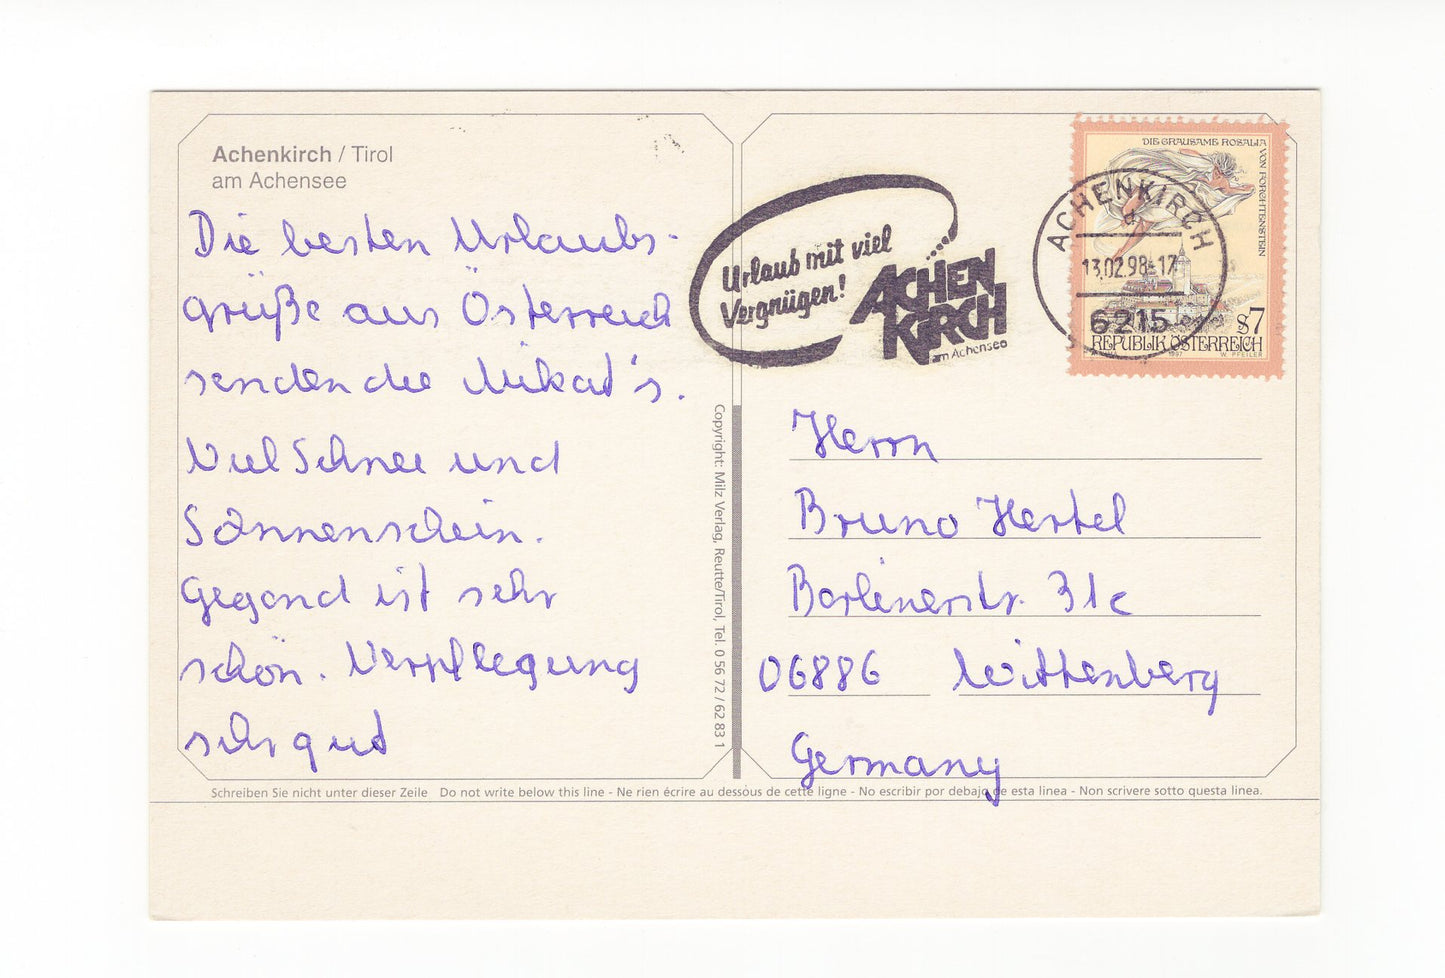 Achenkirch / Tirol
am Achensee
Die besten Urlaubs-
grüße aus Österreich
senden die Mikat's.
Viel Schnee und
Sonnenschein.
Gegend ist sehr
schön. Verpflegung
sehr gut
Copyright: Milz Verlag, Reutte/Tirol, Tel. 0 56 72 / 62 83 1
Urlaub mit viel
Vergnügen!
ACHEN
KIRCH
am Achensee
DIE GRAUSAME ROSALIA
VON FORCHTENSTEIN
ACHENKIRCH
a
13.02.98-17
6215
S7
REPUBLIK ÖSTERREICH
1997 W. PFEILER
Herrn
Bruno Hertel
Berlinerstr. 31c
06886 Wittenberg
Germany
Schreiben Sie nicht unter dieser Zeile Do not write below this line - Ne rien écrire au dessous de cette ligne - No escribir por debajo de esta linea - Non scrivere sotto questa linea.